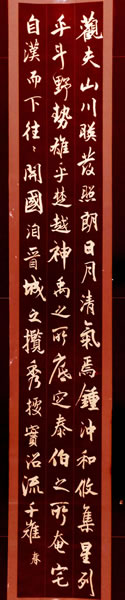 觀夫山川联發照朗日月清氣焉鍾沖和攸集星列
乎斗野勢雄乎楚越神禹之所底定泰伯之所奄宅
自漢而下往々開國洎晉城之攬秀據實沿流千雉